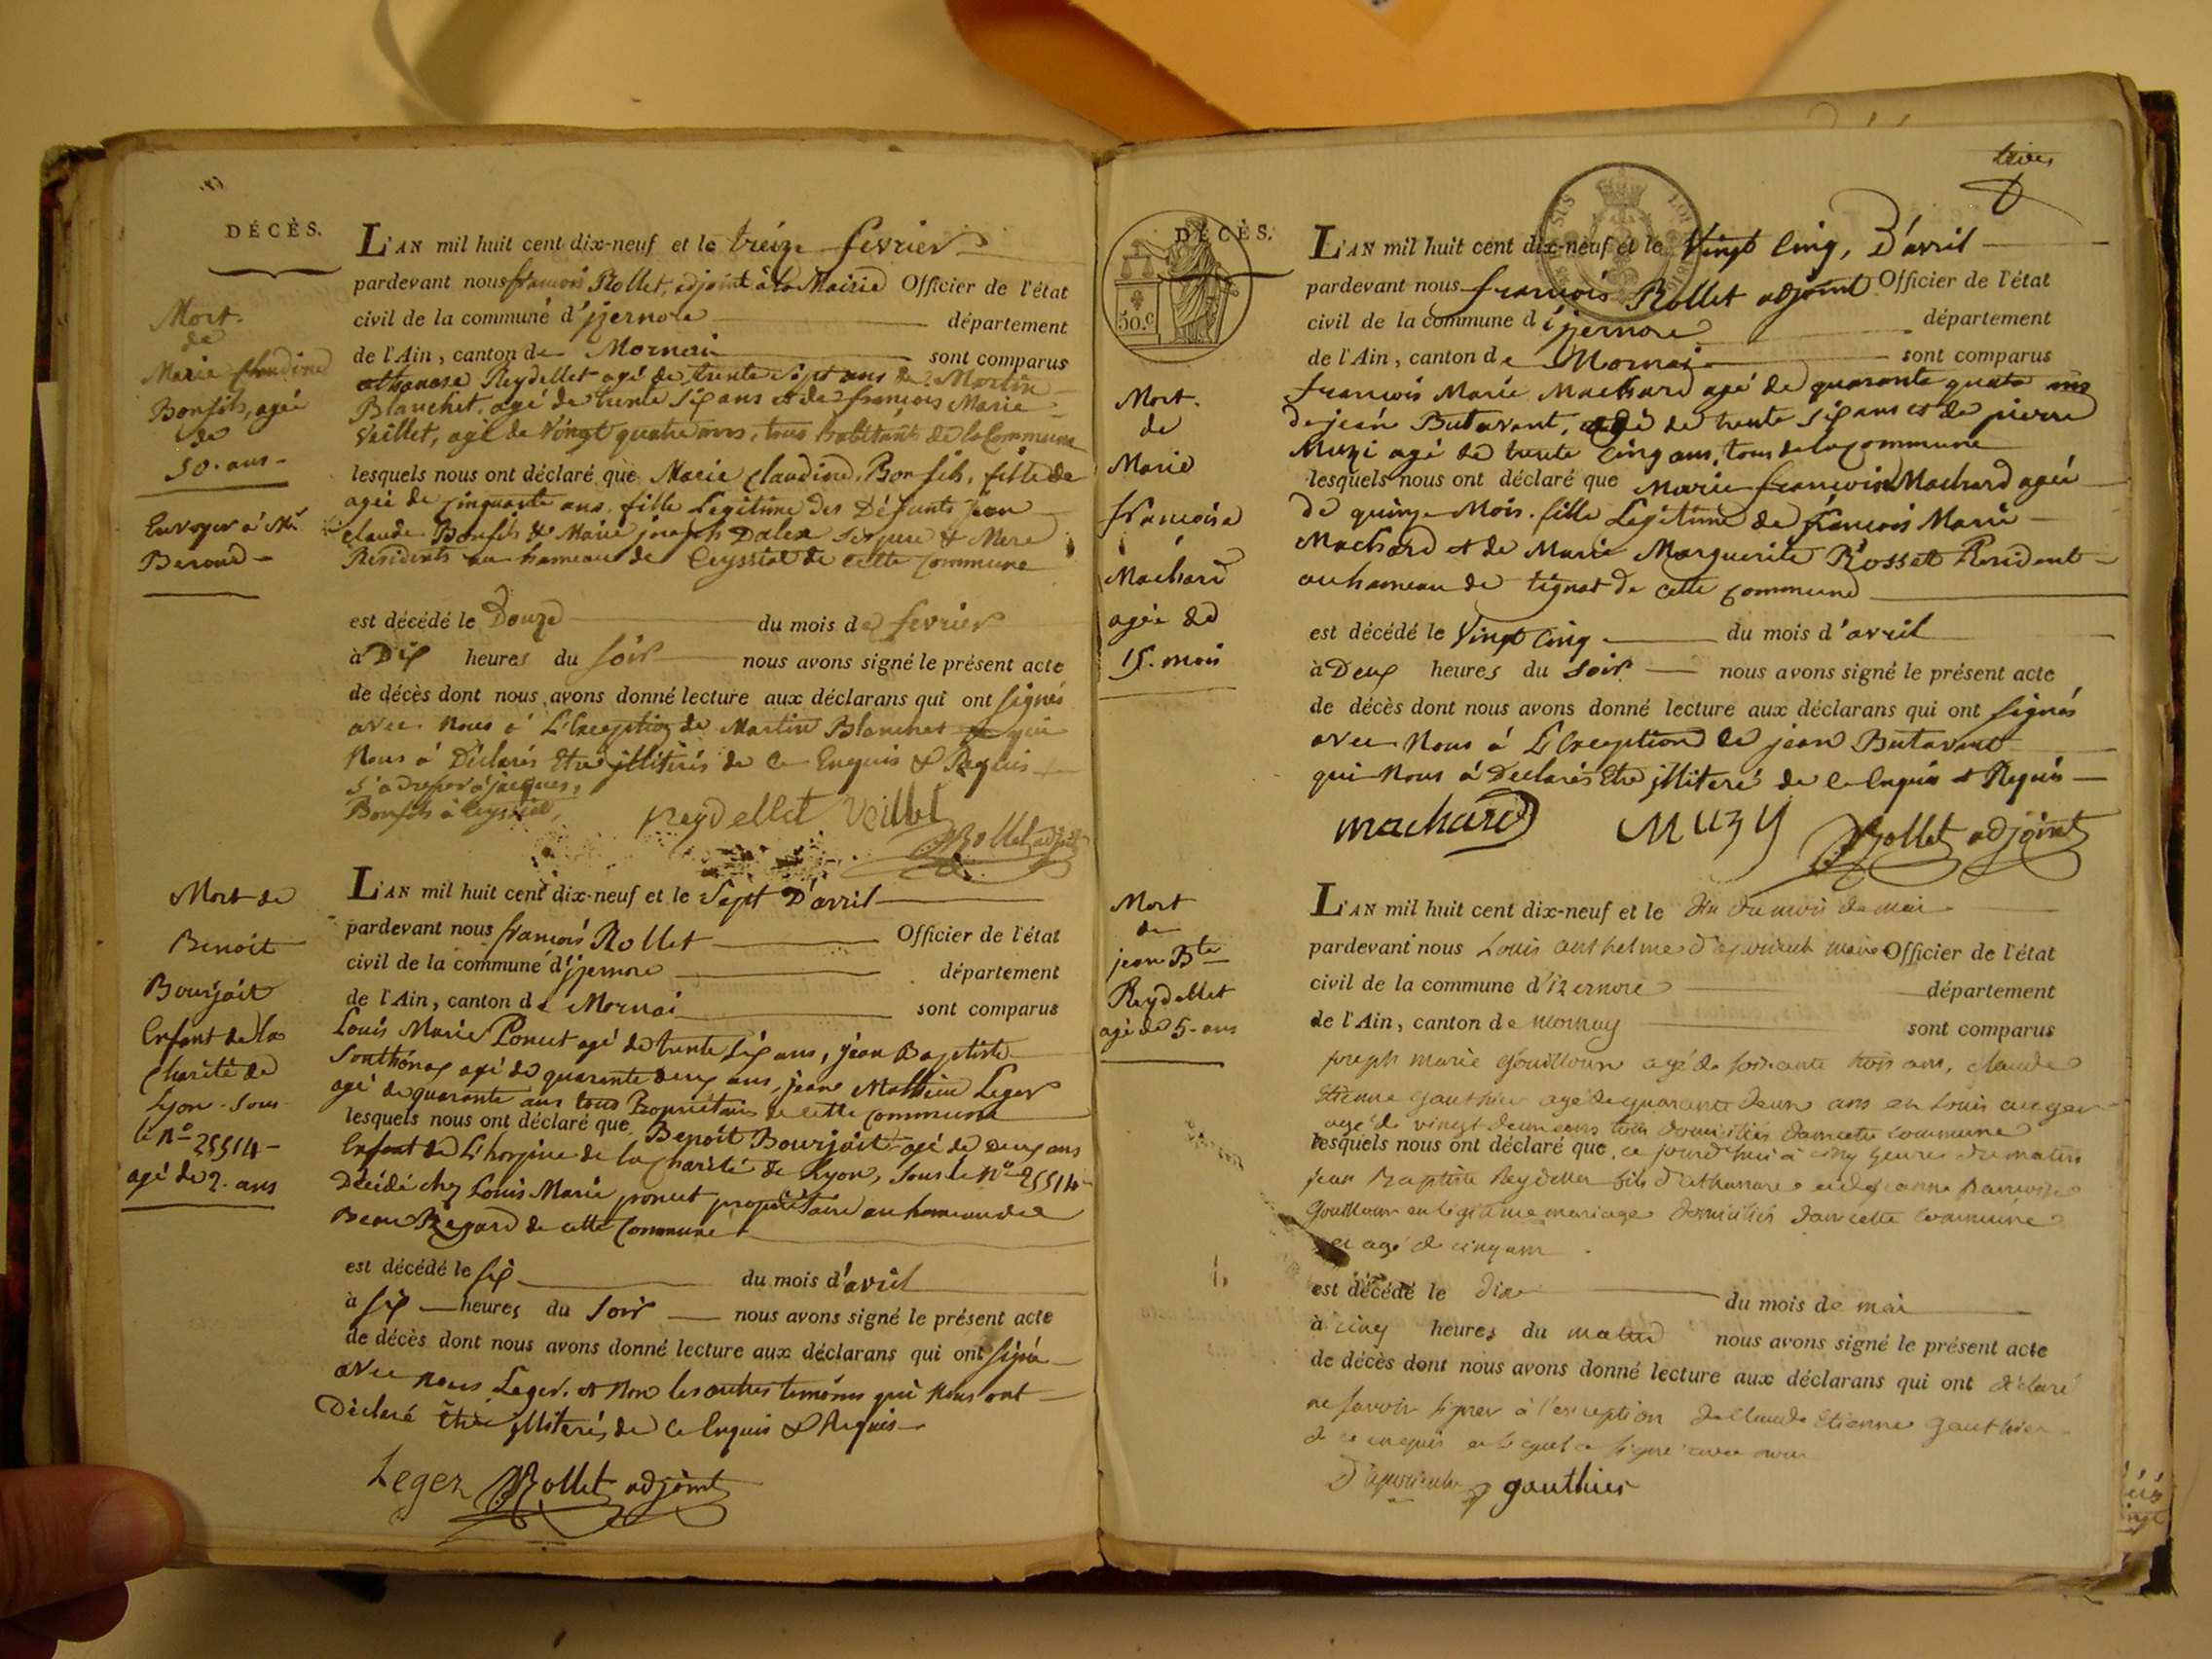 DÉCÈS.
Mort
de
Marie Claudine
Bonfils, agée
de
50. ans
Envoyer à Mr
Beroud
L'AN mil huit cent dix-neuf et le treize fevrier
pardevant nous francois Rollet, adjoint à la Mairie Officier de l'état
civil de la commune d'jjernore département
de l'Ain, canton de Mornai sont comparus
athanase Reydellet agé de trente sept ans de Martin
Blanchet, agé de trente six ans et de francois Marie
Veillet, agé de Vingt quatre ans, tous habitants de la Commune
lesquels nous ont déclaré que Marie Claudine Bonfils, fille de
agée de cinquante ans, fille Legitime des Défunts jean
Claude Bonfils & Marie joseph Dalex ses pere & Mere
Residents au hameau de Ceyssiat de cette Commune
est décédé le Douze du mois de fevrier
à Dix heures du soir nous avons signé le présent acte
de décès dont nous avons donné lecture aux déclarans qui ont signés
avec Nous à L'Exception de Martin Blanchet qui
Nous à Déclarés Etre jlliterés de ce Enquis & Requis
S'adresser à jacques,
Bonfils à Ceyssiat,
Reydellet Veillet
Rollet adjoint
Mort de
Benoit
Bourjait
Enfant de la
Charité de
Lyon Sous
le No 25514
agé de 2. ans
L'AN mil huit cent dix-neuf et le Sept D'avril
pardevant nous francois Rollet Officier de l'état
civil de la commune d'jjernore département
de l'Ain, canton de Mornai sont comparus
Louis Marie Poncet agé de trente six ans, jean Baptiste
Sonthonax agé de quarante deux ans, jean Mathieu Leger
agé de quarante ans tous Proprietaires de cette Commune
lesquels nous ont déclaré que Benoit Bourjait agé de deux ans
Enfant de L'hospice de la Charité de Lyon, Sous le No 25514
Décédé chez Louis Marie poncet propriétaire au hameau de
Beau Regard de cette Commune
est décédé le six du mois d'avril
à six heures du Soir nous avons signé le présent acte
de décès dont nous avons donné lecture aux déclarans qui ont signé
avec nous Leger, et non les autres temoins qui Nous ont
Déclaré Etre jlliterés de ce Enquis & Requis
Leger Rollet adjoint
DÉCÈS.
50.c
Mort
de
Marie
francoise
Machard
agée de
15. mois
L'AN mil huit cent dix-neuf et le Vingt Cinq, D'avril
pardevant nous francois Rollet adjoint Officier de l'état
civil de la commune d'ijernore département
de l'Ain, canton de Mornai sont comparus
francois Marie Machard agé de quarante quatre ans
de jean Butavant, agé de trente six ans et de pierre
Muzi agé de trente Cinq ans, tous de la Commune
lesquels nous ont déclaré que Marie francoise Machard agée
de quinze Mois, fille Legitime de francois Marie
Machard et de Marie Marguerite Rosset Resident
au hameau de tignat de cette commune
est décédé le Vingt Cinq du mois d'avril
à Deux heures du soir nous avons signé le présent acte
de décès dont nous avons donné lecture aux déclarans qui ont signés
avec Nous à L'Exception de jean Butavant
qui Nous à Declarés Etre jlliteré de ce Enquis & Requis
machard Muzy Rollet adjoint
Mort
de
jean Bte
Reydellet
agé de 5. ans
L'AN mil huit cent dix-neuf et le dix du mois de mai
pardevant nous Louis anthelme maire Officier de l'état
civil de la commune d'izernore département
de l'Ain, canton de mornay sont comparus
joseph marie Gouilloux agé de soixante trois ans, claude
Etienne Gauthier agé de quarante deux ans et Louis
agé de vingt deux ans tous domiciliés dans cette commune
lesquels nous ont déclaré que ce jourd'hui à cinq heures du matin
jean Baptiste Reydellet fils d'athanase et de jeanne francoise
Gouilloux en legitime mariage domiciliés dans cette commune
et agé de cinq ans
est décédé le dix du mois de mai
à cinq heures du matin nous avons signé le présent acte
de décès dont nous avons donné lecture aux déclarans qui ont déclaré
ne savoir signer à l'exception de Claude Etienne Gauthier
de ce enquis et lequel a signé avec nous
gauthier